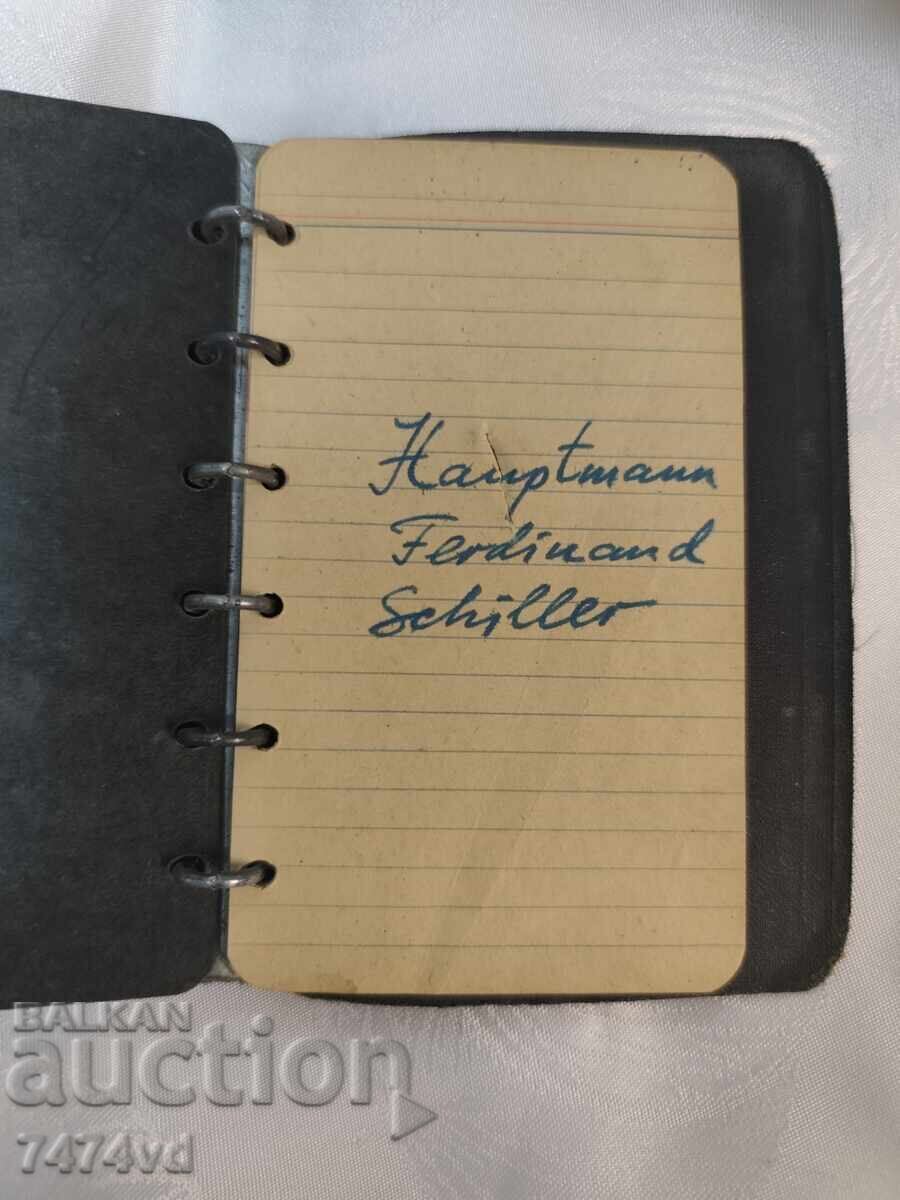 Hauptmann
Ferdinand
Schiller
BALKAN
auction
7474vd